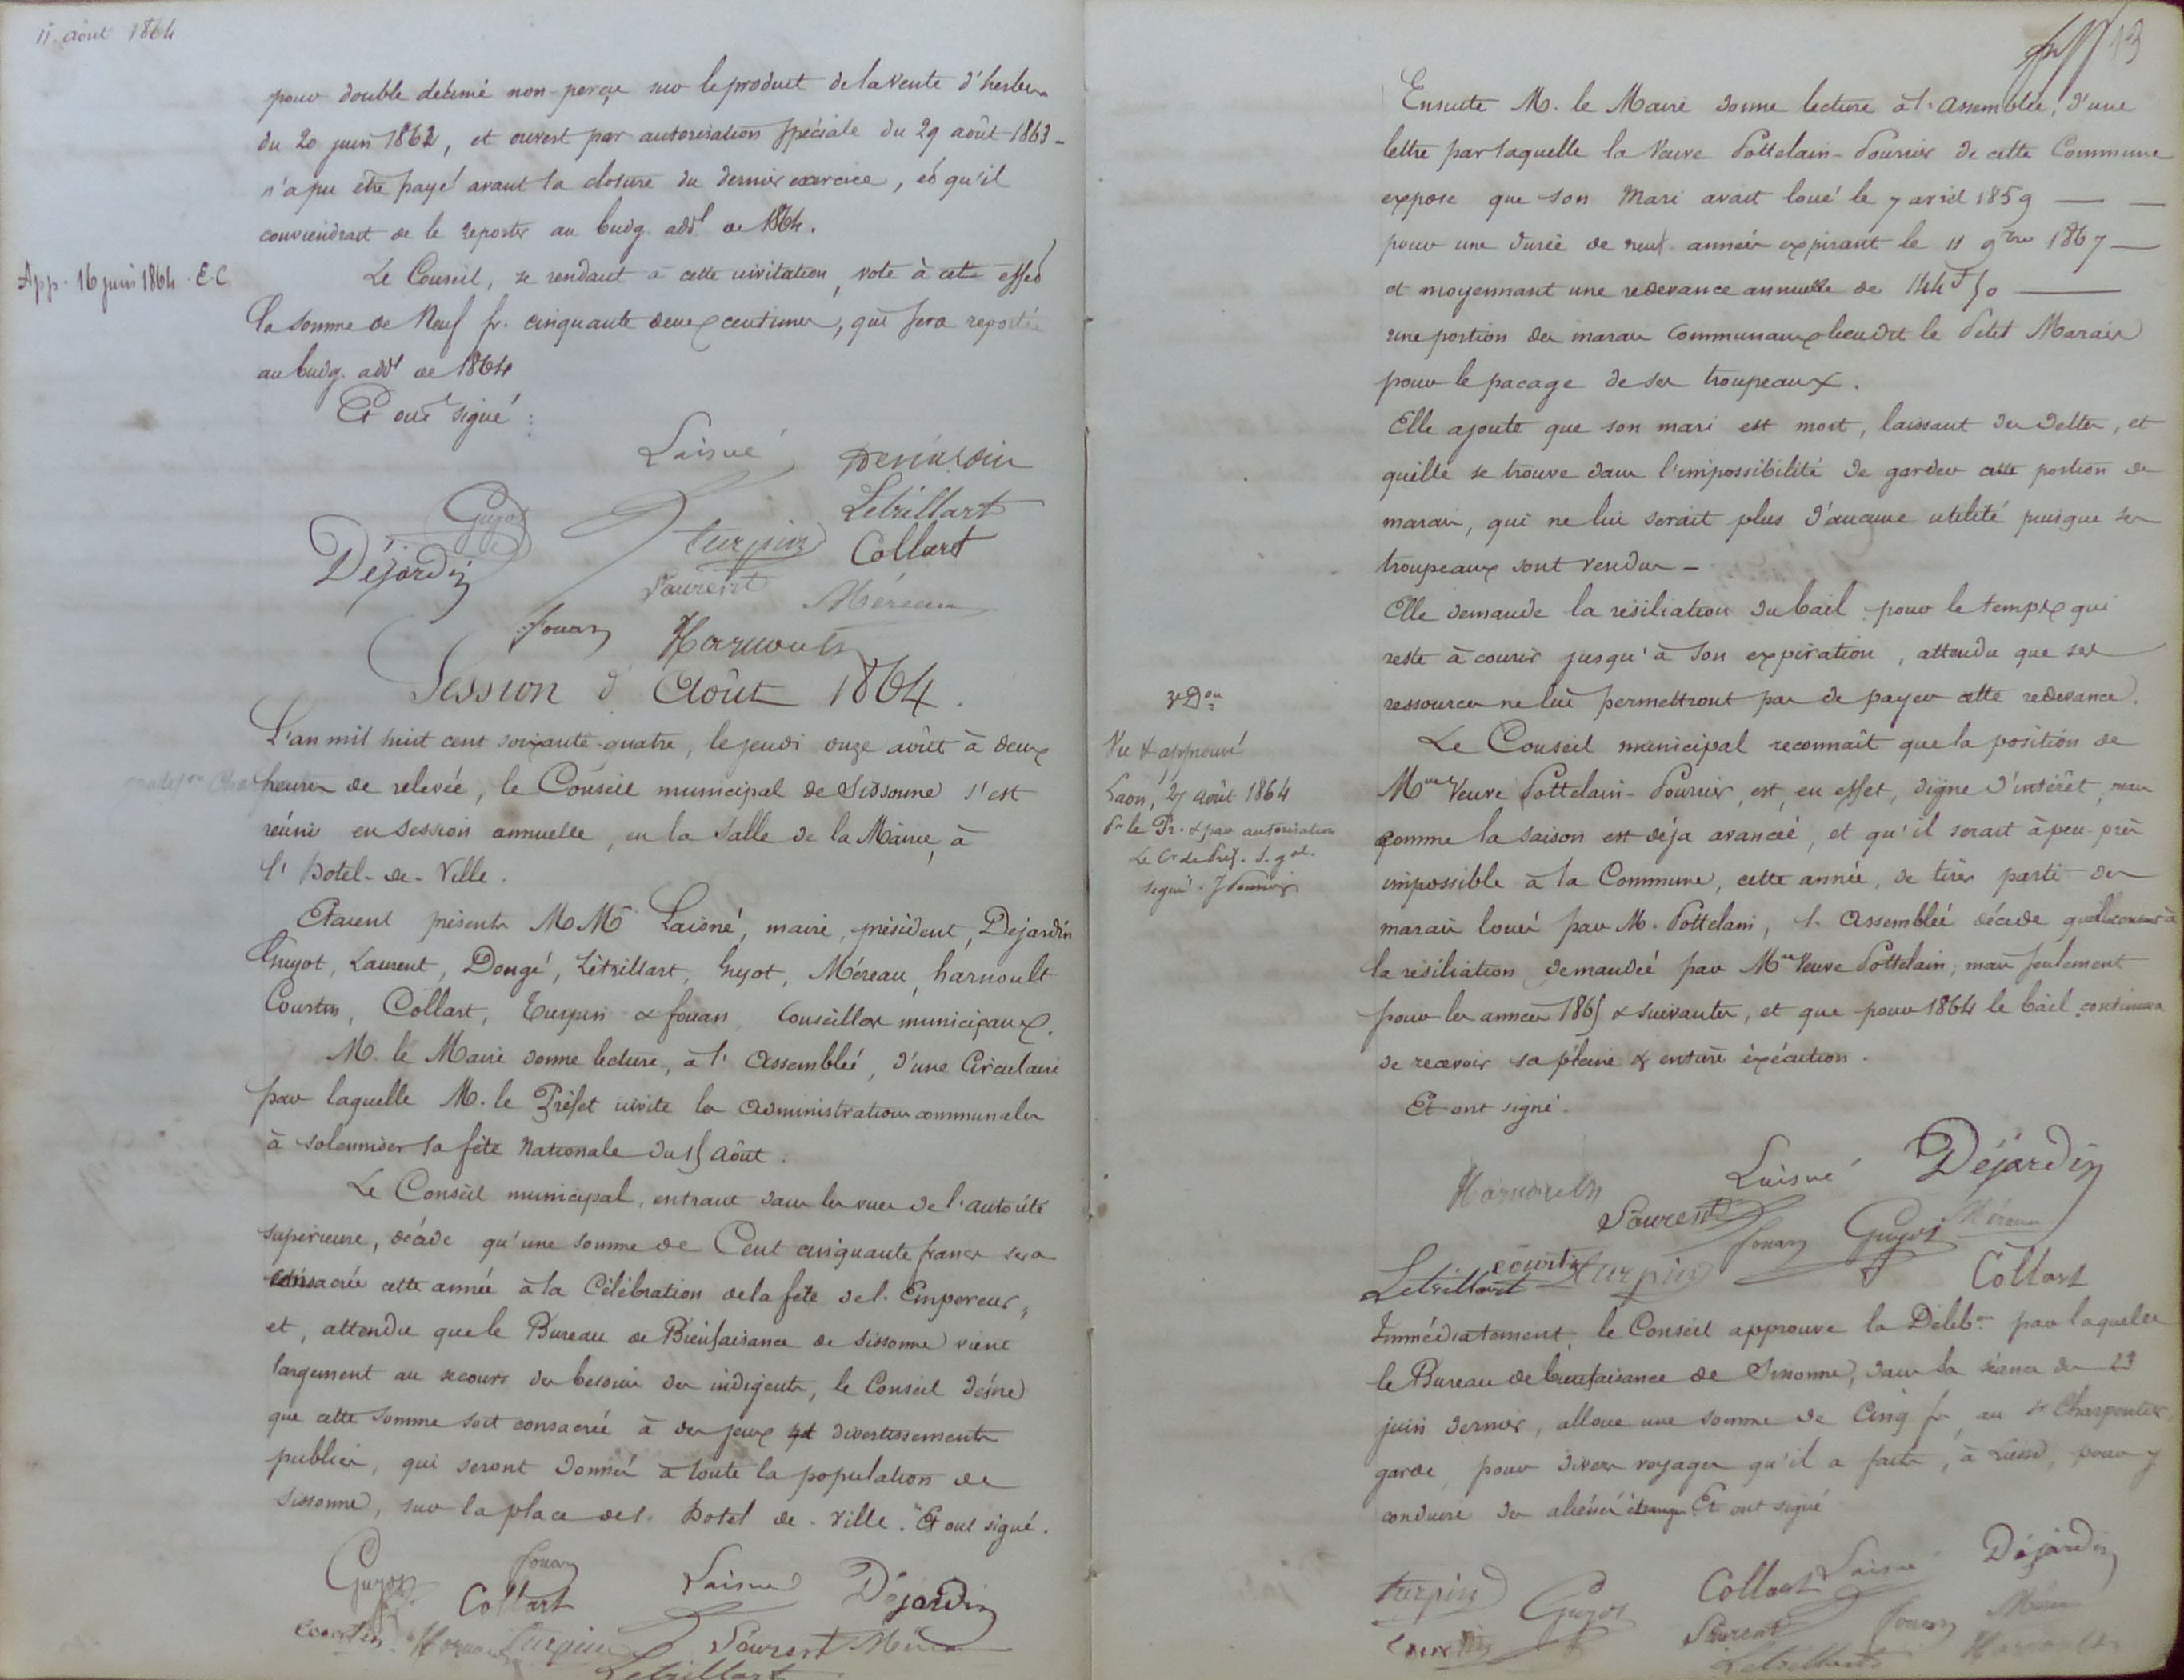 11 août 1864
pour double décime non-perçu sur le produit de la vente d'herbes
du 20 juin 1862, et ouvert par autorisation spéciale du 29 août 1863 -
n'a pu être payé avant la cloture du dernier exercice, et qu'il
conviendrait de le reporter au budg. addl de 1864.
App. 16 juin 1864. E.C.
Le Conseil, se rendant à cette invitation, vote à cet effet
la somme de Neuf fr. cinquante deux centimes, qui sera reportée
au budg. addl de 1864
Et ont signé :
Laisné
Guyot
Létrillart
Turpin
Collart
Déjardin
Laurent
Méreau
fouan
Harnoult
Session d'Août 1864.
L'an mil huit cent soixante-quatre, le jeudi onze août à deux
heures de relevée, le Conseil municipal de Sissonne s'est
réuni en session annuelle, en la Salle de la Mairie, à
l'hotel-de-Ville.
Etaient présents MM Laisné, maire, président, Dejardin
Guyot, Laurent, Dougé, Létrillart, Guyot, Méreau, harnoult
Courtin, Collart, Turpin & fouan, Conseillers municipaux.
M. le Maire donne lecture, à l'Assemblée, d'une Circulaire
par laquelle M. le Préfet invite les administrations communales
à solenniser la fête Nationale du 15 Août.
Le Conseil municipal, entrant dans les vues de l'autorité
supérieure, décide qu'une somme de Cent cinquante francs sera
consacrée cette année à la Célébration de la fête de l'Empereur,
et, attendu que le Bureau de Bienfaisance de Sissonne vient
largement au secours des besoins des indigents, le Conseil désire
que cette somme soit consacrée à des jeux et divertissements
publics, qui seront donnés à toute la population de
Sissonne, sur la place de l'hotel de-Ville. Et ont signé.
Guyot
fouan
Collart
Laisné
Déjardin
Courtin
Turpin
Laurent
Létrillart
13
Ensuite M. le Maire donne lecture à l'assemblée, d'une
lettre par laquelle la Veuve Pottelain-Pourrier de cette Commune
expose que son Mari avait loué le 7 avril 1859
pour une durée de neuf années expirant le 11 9bre 1867
et moyennant une redevance annuelle de 144f50
une portion des marais Communaux lieudit le Petit Marais
pour le pacage de ses troupeaux.
Elle ajoute que son mari est mort, laissant des dettes, et
qu'elle se trouve dans l'impossibilité de garder cette portion de
marais, qui ne lui serait plus d'aucune utilité puisque ses
troupeaux sont vendus -
Elle demande la résiliation du bail pour le temps qui
reste à courir jusqu'à son expiration, attendu que ses
ressources ne lui permettront pas de payer cette redevance.
3e Don
Vu & approuvé
Laon, 27 août 1864
Pr le Pr. & par autorisation
Le Cr de Préf. S. gal.
signé.
Le Conseil municipal reconnaît que la position de
Mme Veuve Pottelain-Pourrier, est, en effet, digne d'intérêt, mais
comme la saison est déja avancée, et qu'il serait à peu près
impossible à la Commune, cette année, de tirer parti des
marais loués par M. Pottelain, l'Assemblée décide
la résiliation demandée par Mme Veuve Pottelain; mais seulement
pour les années 1865 & suivantes, et que pour 1864 le bail continuera
de recevoir sa pleine & entière exécution.
Et ont signé.
Harnoult
Laisné
Déjardin
Laurent
fouan
Guyot
Méreau
Courtin
Turpin
Collart
Létrillart
Immédiatement, le Conseil approuve la Délibon par laquelle
le Bureau de bienfaisance de Sissonne, dans sa séance du 23
juin dernier, alloue une somme de Cinq fr. au Sr Charpentier
garde, pour divers voyages qu'il a faits, à Liesse, pour y
conduire des aliénés étrangers. Et ont signé
Turpin
Guyot
Collart
Laisné
Déjardin
Courtin
Laurent
fouan
Létrillart
Harnoult